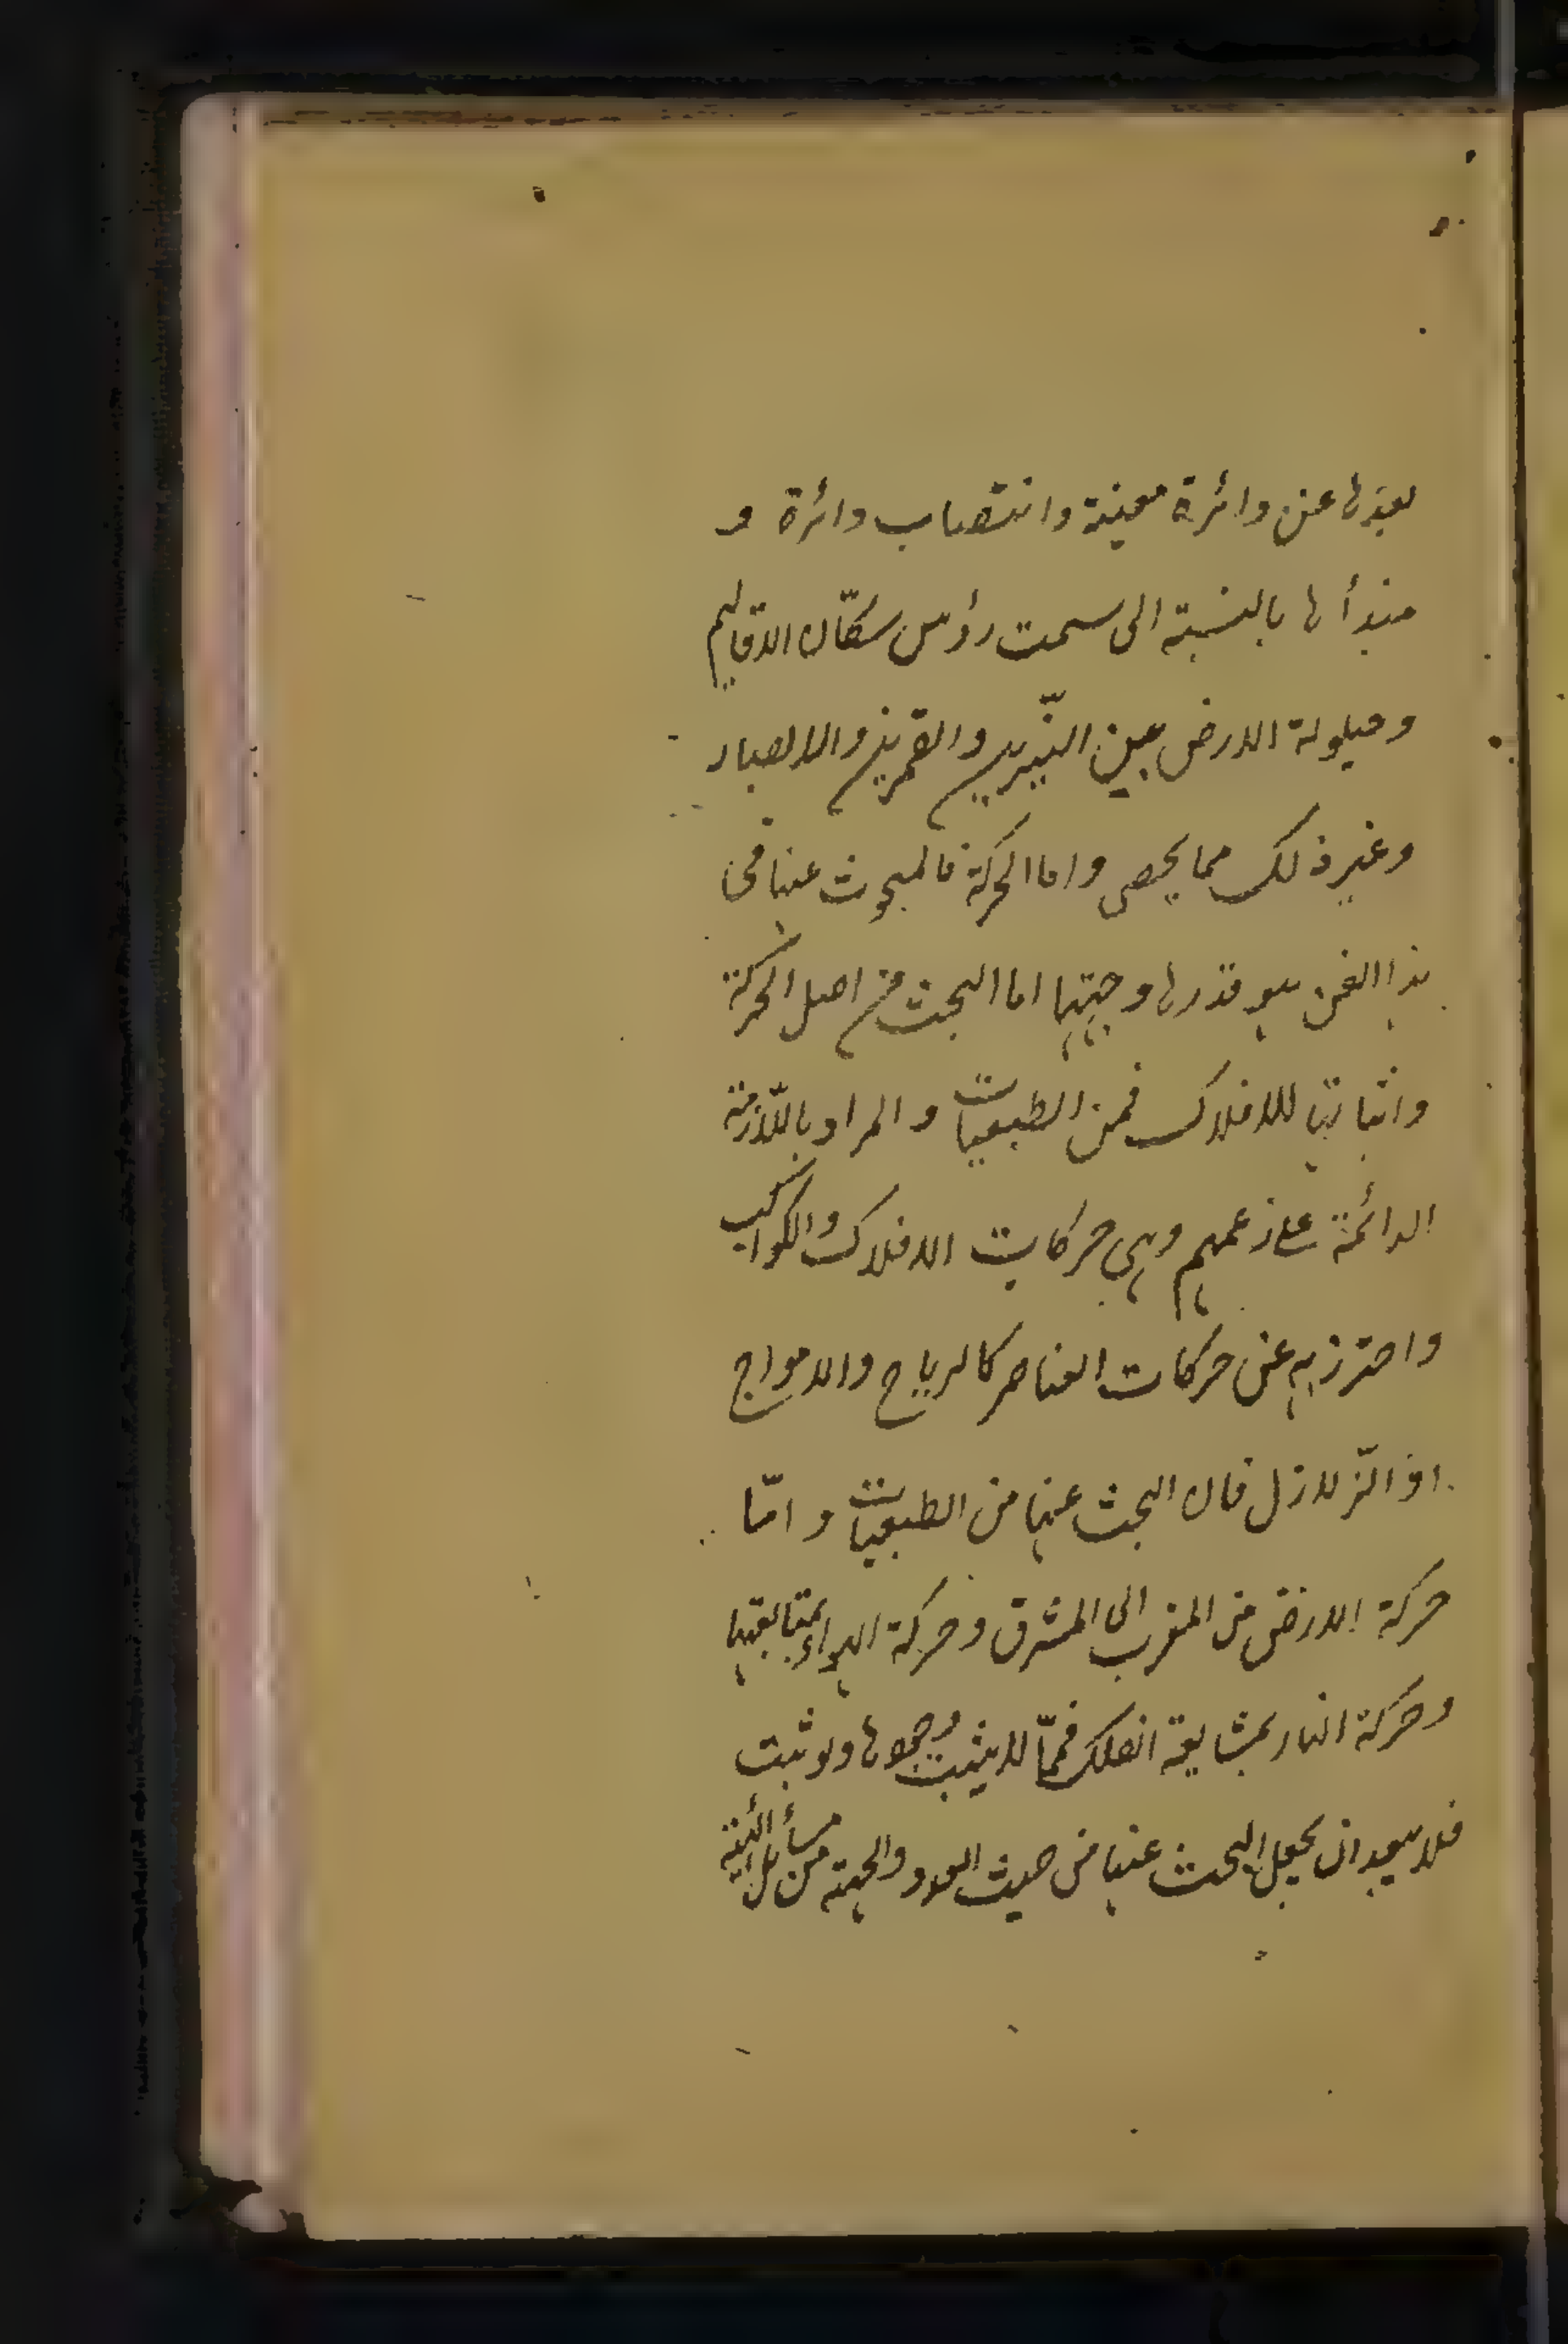 بعدها عن دائرة معينة وانتصاب دائرة و
مبدأها بالنسبة الى سمت رؤس سكّان الاقاليم
وحيلولة الارض بين النّيرين والقمر بين والابصار
وغير ذلك مما يحصى واما الحركة فالمبحوث عنها فى
هذا الفن هو قدرها وجهتها اما البحث من اصل الحركة
واثباتها للافلاك فمن الطبعيات والمراد باللّازمة
الدائمة على زعمهم وهى حركات الافلاك والكواكب
واحترز به عن حركات العناصر كالرياح والامواج
والزّلازل فان البحث عنها من الطبعيات وامّا
حركة الارض من المغرب الى المشرق وحركة الهواء بمتابعتها
وحركة النار بمشايعة الفلك فممّا لا يثبت وجودها ولو ثبت
فلا يبعد ان يجعل البحث عنها من حيث القدر والجهة من مسائل الهيئة